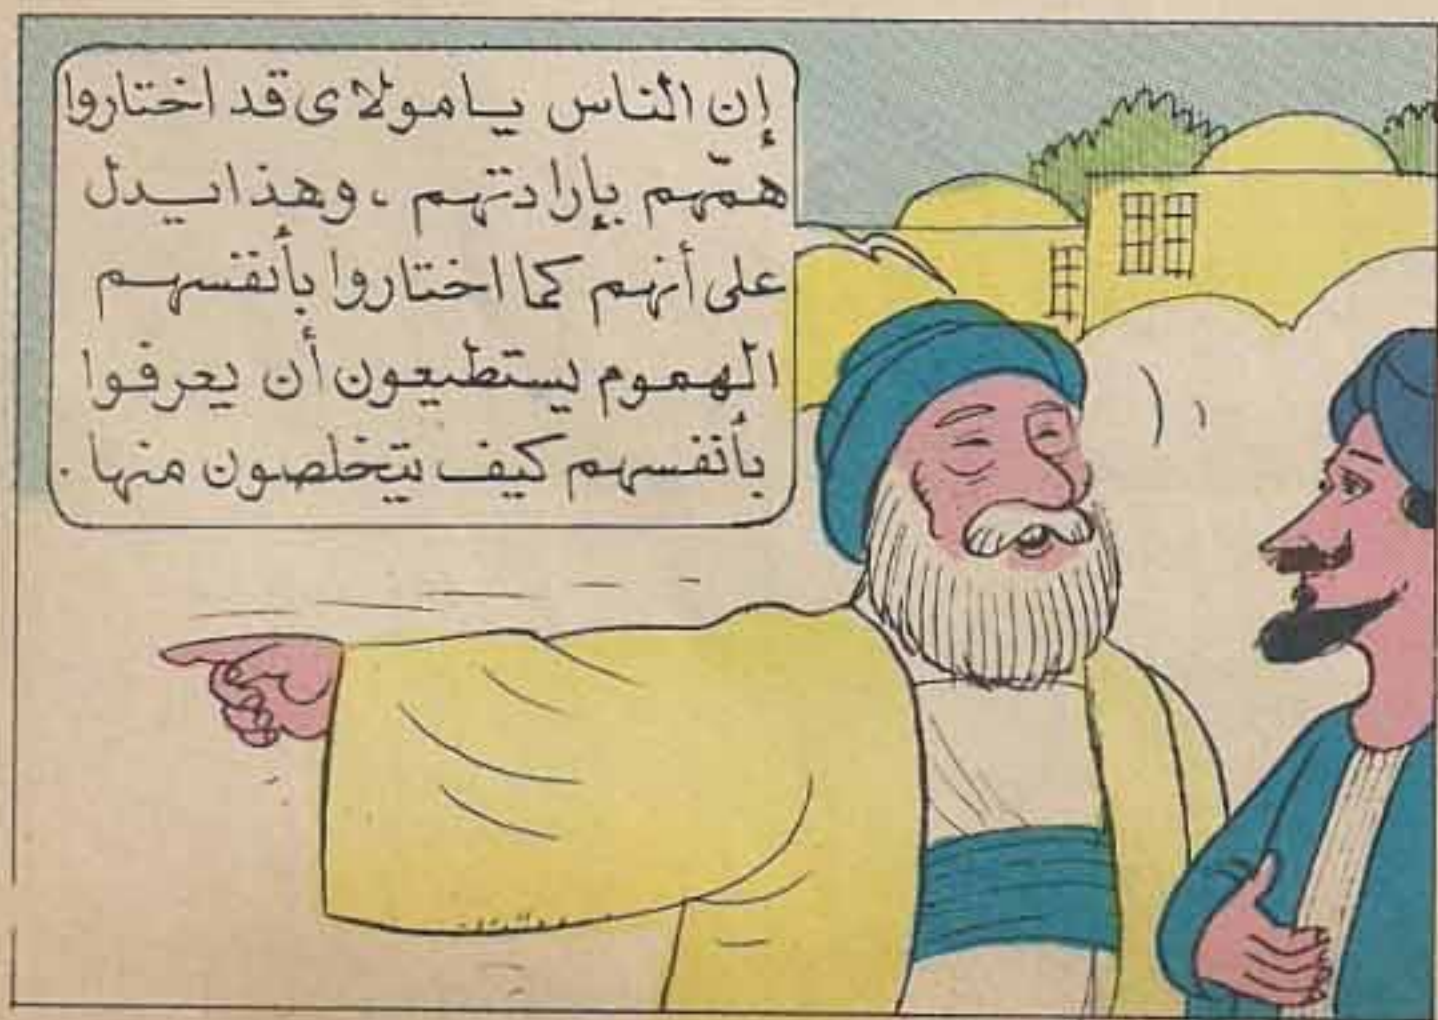 إن الناس يا مولاى قد اختاروا
همّهم بإرادتهم ، وهذا يدل
على أنهم كما اختاروا بأنفسهم
الهموم يستطيعون أن يعرفوا
بأنفسهم كيف يتخلصون منها .